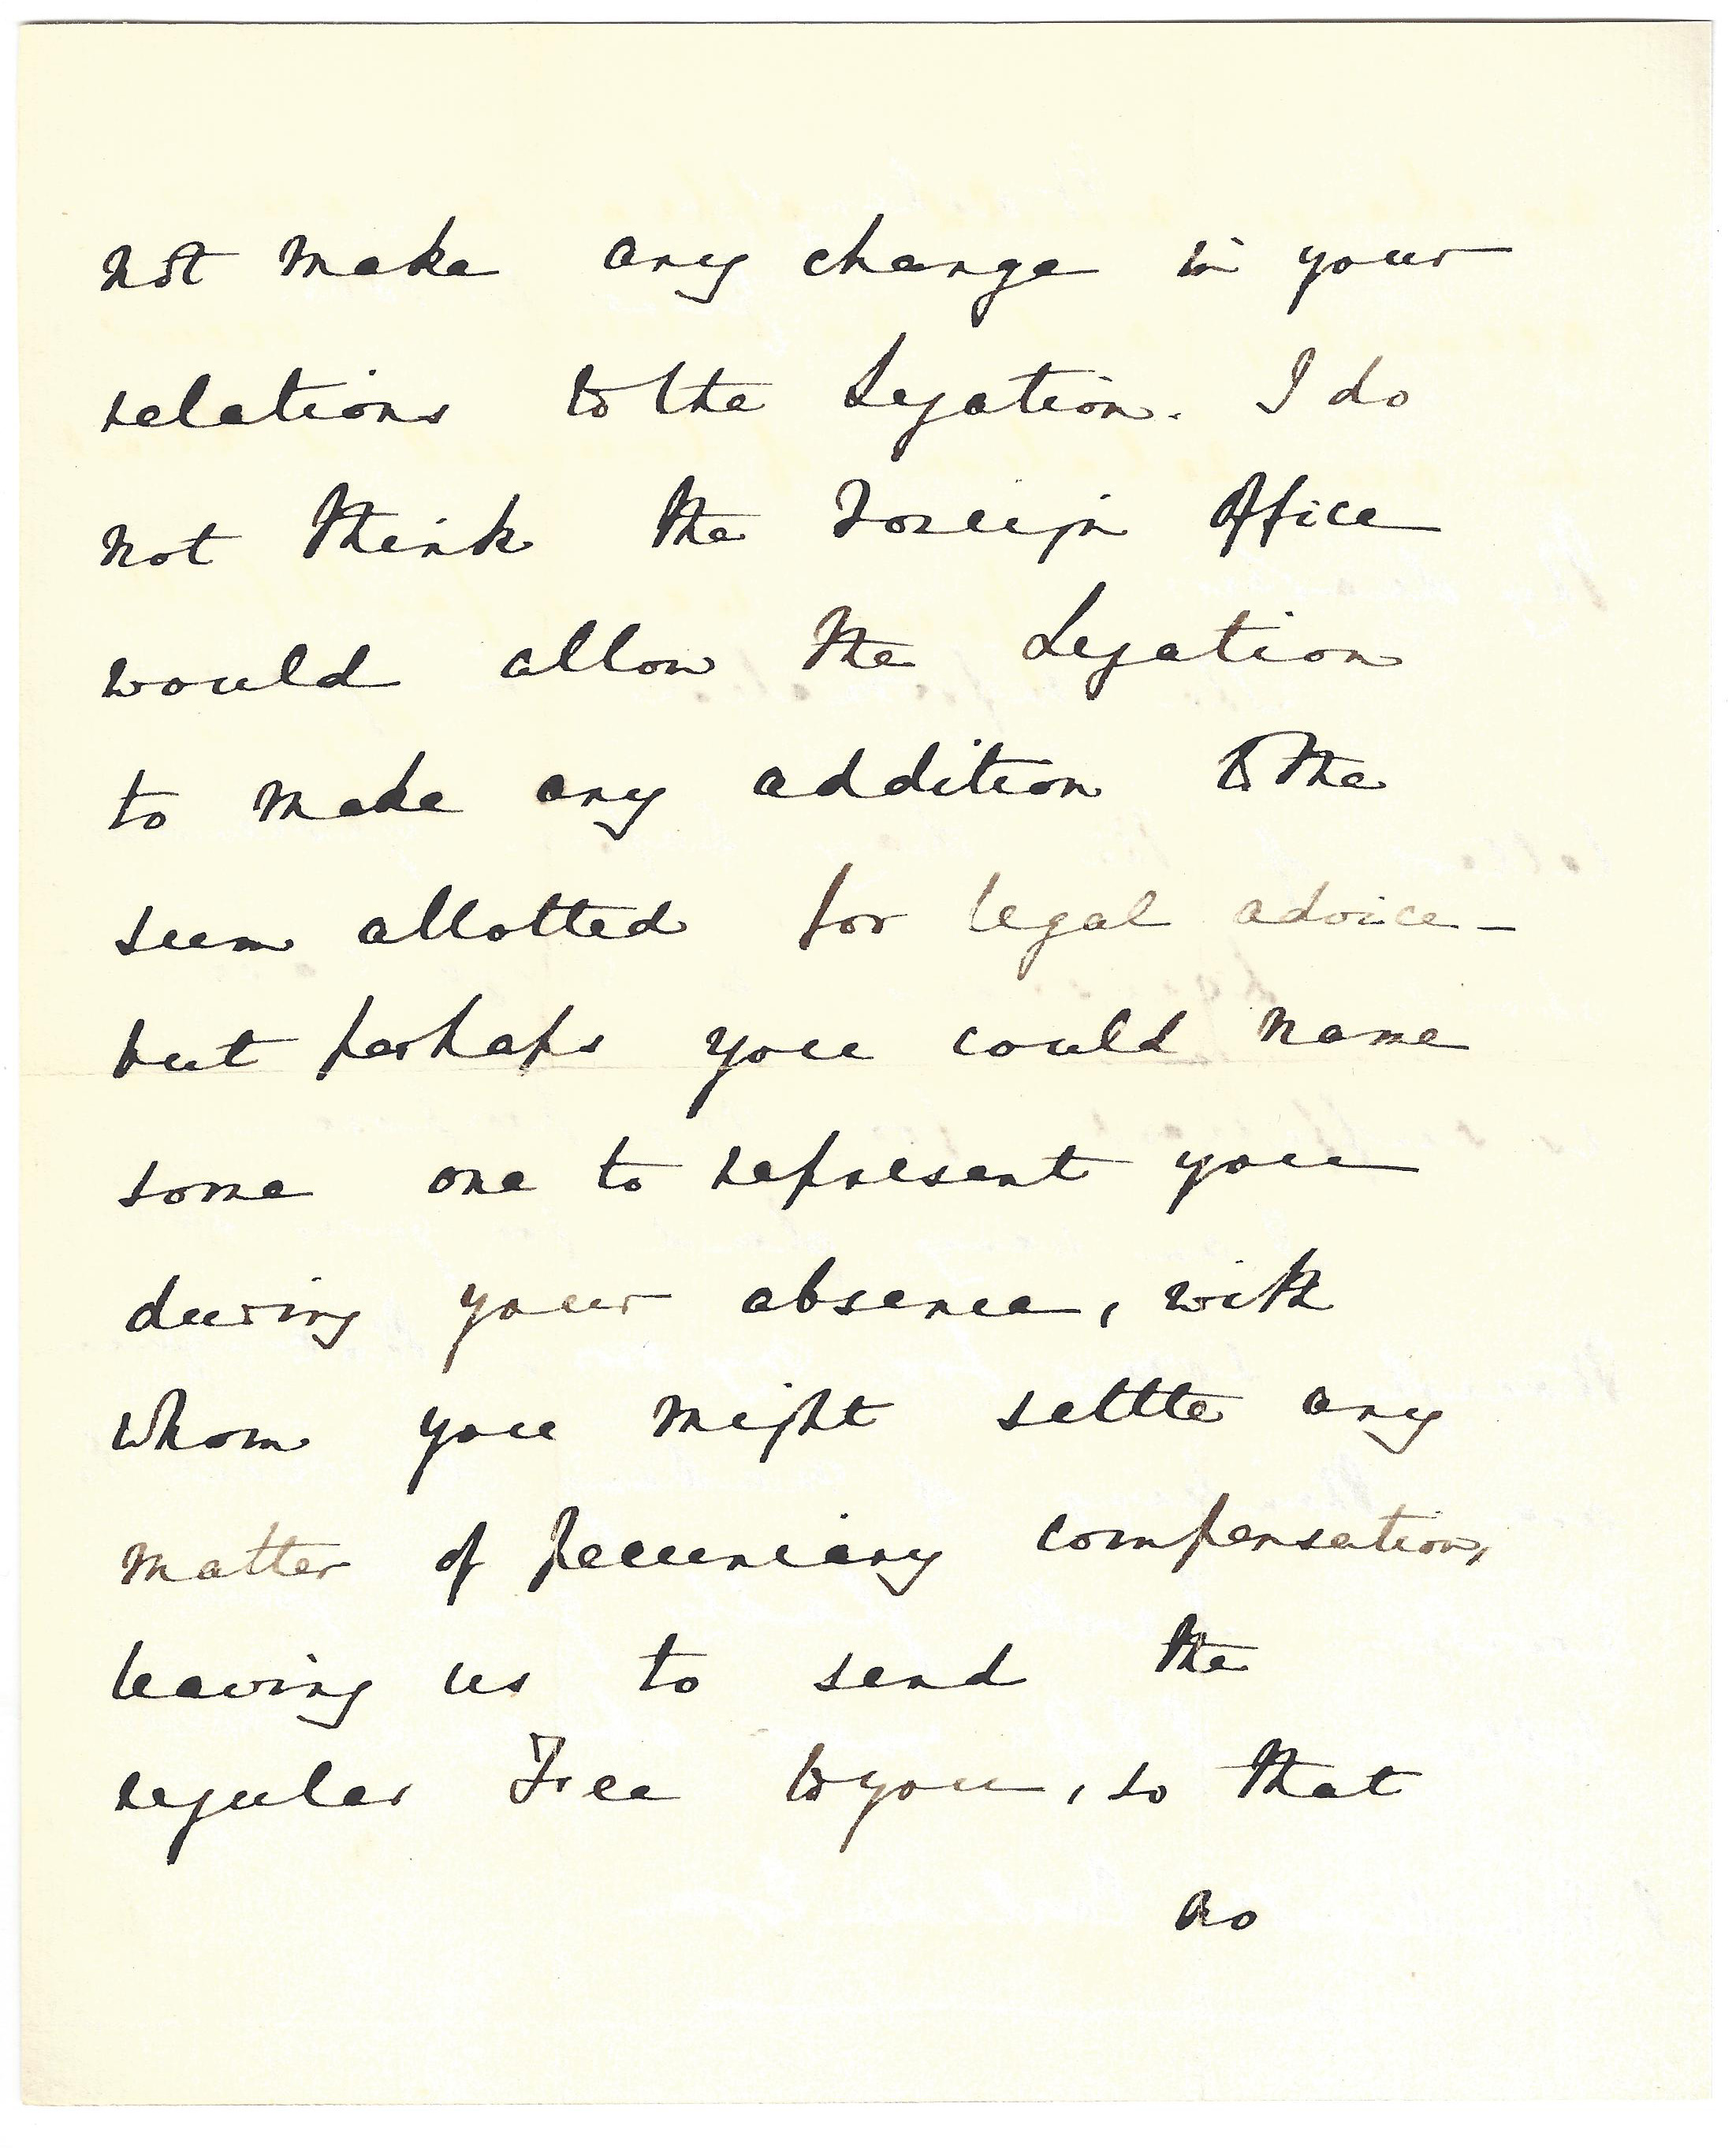 not make any change in your
relations to the Legation. I do
not think the Foreign Office
would allow the Legation
to make any addition to the
sum allotted for legal advice -
but perhaps you could name
some one to represent you
during your absence, with
whom you might settle any
matter of pecuniary compensation,
leaving us to send the
regular Fee to you, so that
no